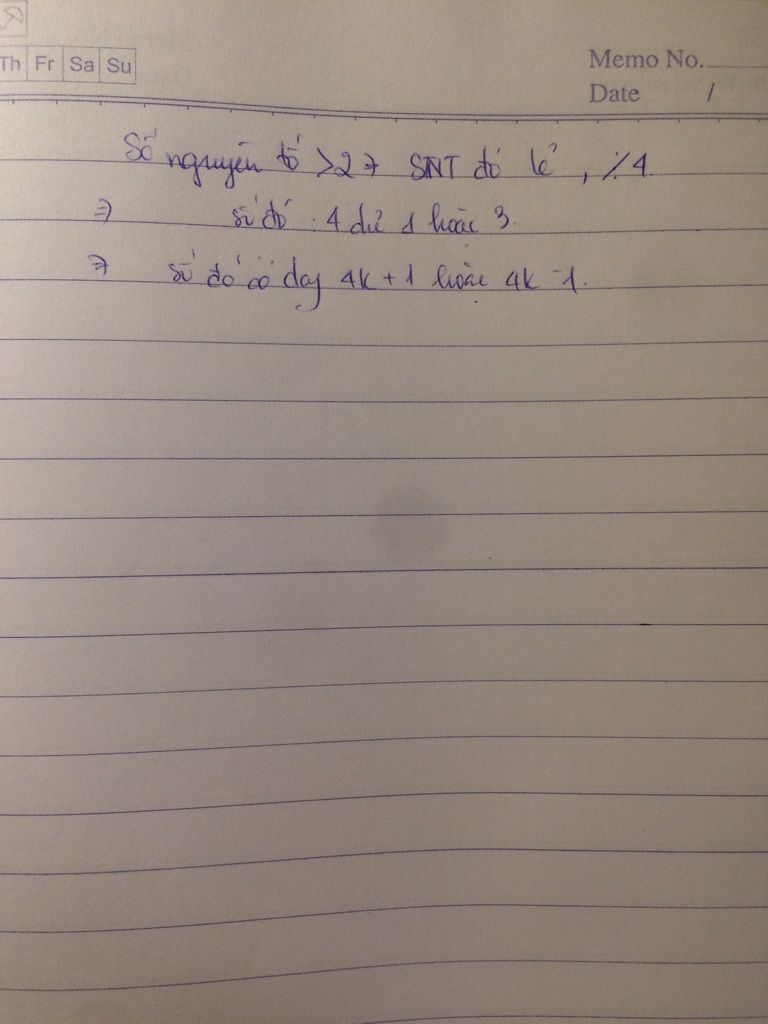 Th Fr Sa Su
Memo No.
Date /
Số nguyên tố >2 => SNT đó lẻ, ⋮̸ 4
=> số đó : 4 dư 1 hoặc 3.
=> số đó có dạng 4k + 1 hoặc 4k - 1.